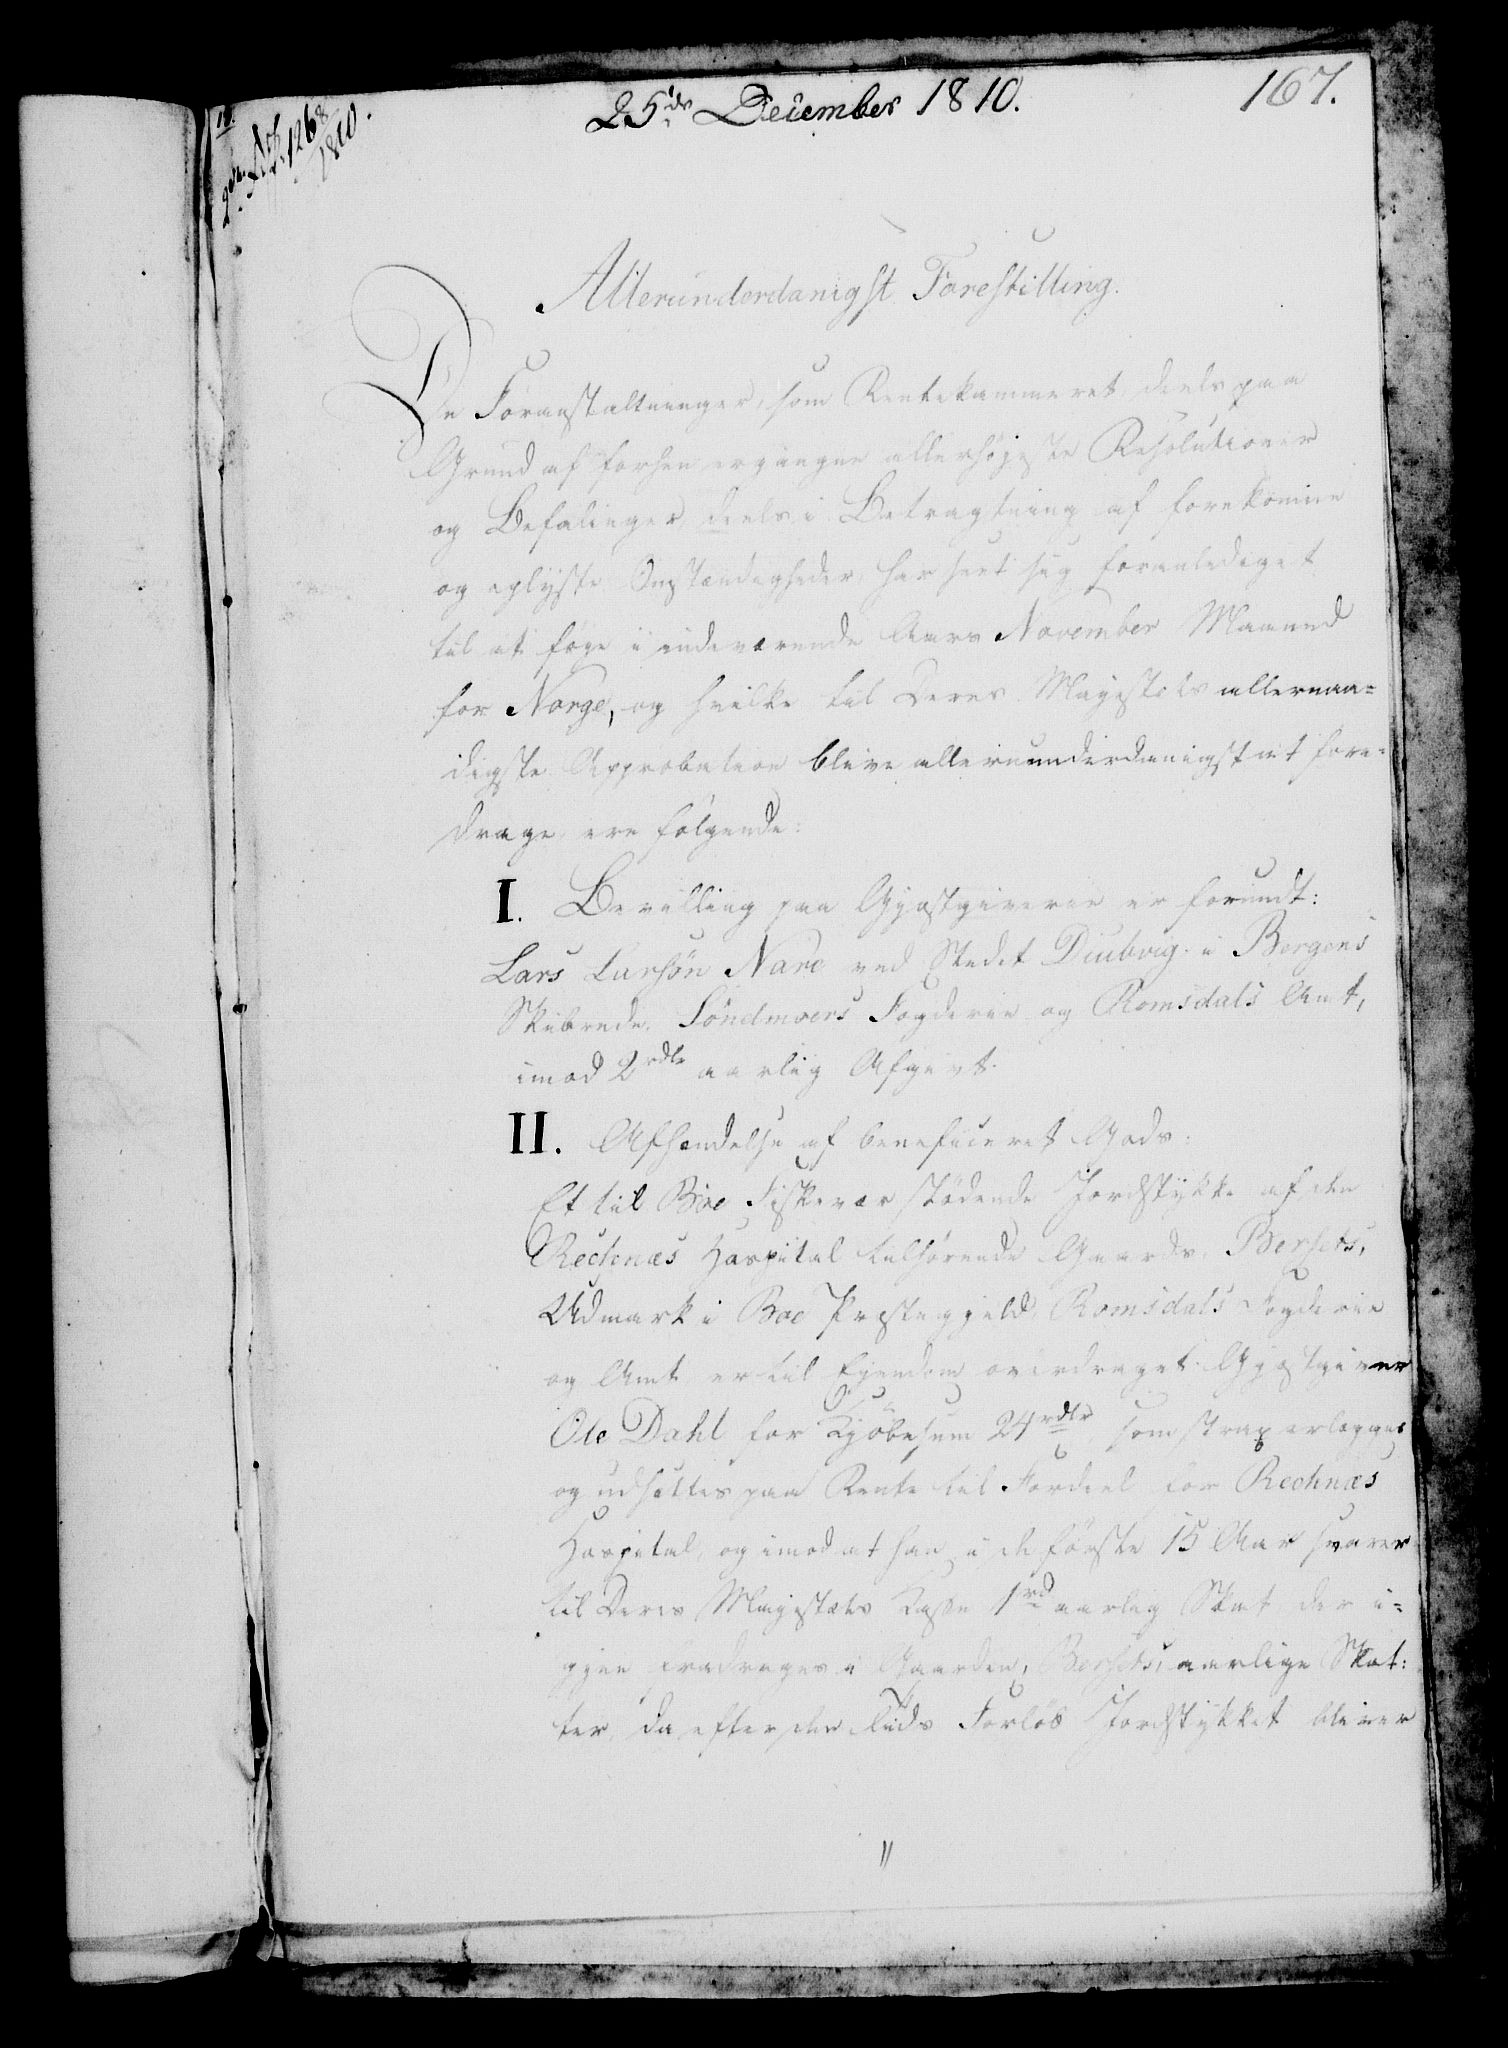 25de December 1810.
167.
1268
1810.
Allerunderdanigst Forestilling.
De Foranstaltninger, som Rentekammeret, deels paa
Grund af forhen ergangne allerhøjeste Resolutioner
og Befalinger, deels i Betragtning af forekomne
og oplyste Omstændigheder, har seet sig foranlediget
til at føje i indeværende Aars November Maaned
for Norge, og hvilke til Deres Majestæts allernaa=
digste Approbation blive allerunderdanigst at fore=
drage, ere følgende:
I. Bevilling paa Gjæstgiverie er forundt:
Lars Larsøn Nare ved Stedet Diubvig i Borgens
Skibrede, Söndmoers Fogderie og Romsdals Amt,
imod 2 rdlr aarlig Afgivt.
II. Afhændelse af beneficeret Gods:
Et til Boe Fiskevær stödende Jordstykke af den
Rechnæs Hospital tilhørende Gaards, Bersets,
Udmark i Boe Præstegjeld, Romsdals Fogderie
og Amt er til Ejendom overdraget Gjæstgiver
Ole Dahl for Kjöbesum 24 rdlr, som strax erlægges
og udsættes paa Rente til Fordeel for Rechnæs
Hospital, og imod at han i de förste 15 Aar svarer
til Deres Majestæts Kasse 1 rd aarlig Skat, der i=
gjen fradrages i Gaarden, Bersets, aarlige Skat:
ter, da efter den Tids Forløb Jordstykket bliver